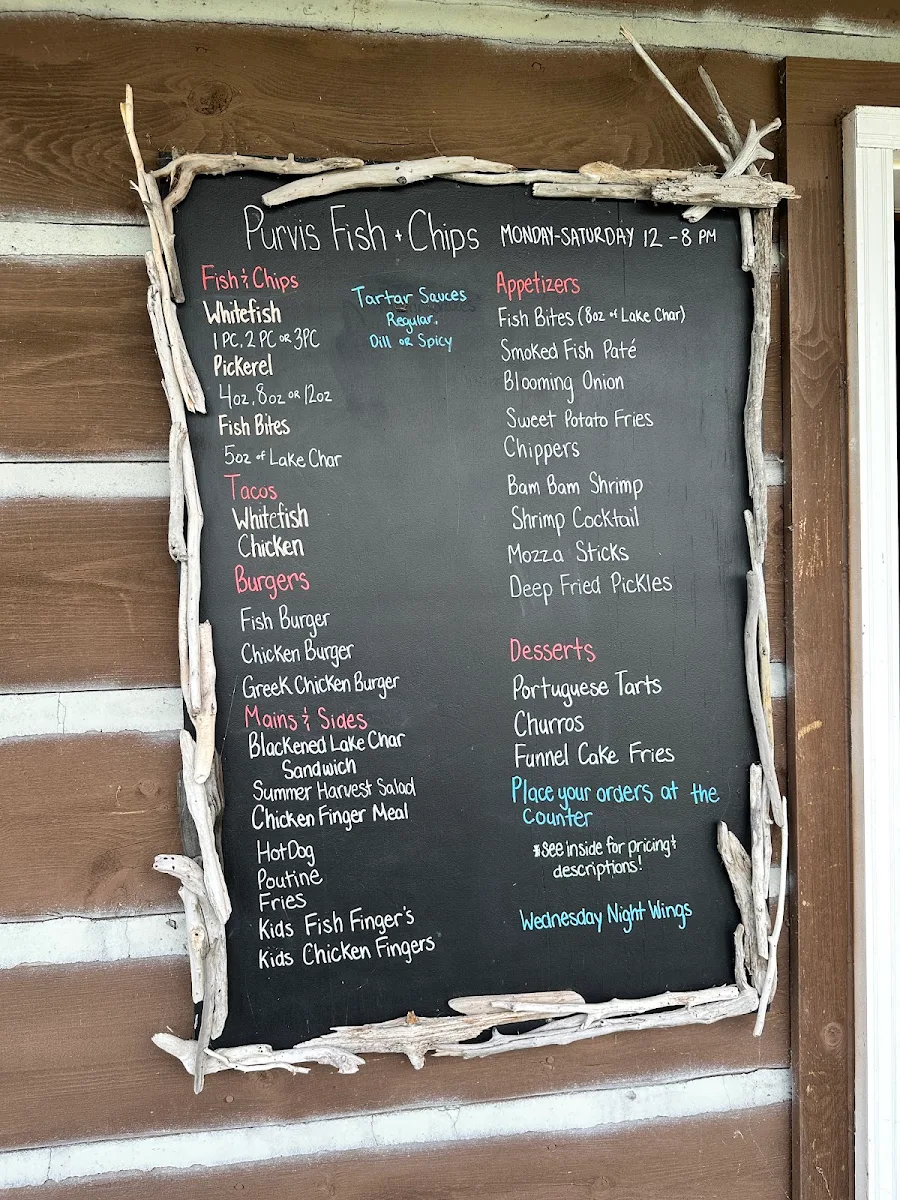 Purvis Fish + Chips MONDAY-SATURDAY 12 - 8 PM
Fish & Chips
Whitefish
1 PC, 2 PC OR 3PC
Pickerel
4oz, 8oz OR 12oz
Fish Bites
5oz of Lake Char
Tacos
Whitefish
Chicken
Burgers
Fish Burger
Chicken Burger
Greek Chicken Burger
Mains & Sides
Blackened Lake Char
Sandwich
Summer Harvest Salad
Chicken Finger Meal
Hot Dog
Poutine
Fries
Kids Fish Finger's
Kids Chicken Fingers
Tartar Sauces
Regular,
Dill OR Spicy
Appetizers
Fish Bites (8oz of Lake Char)
Smoked Fish Paté
Blooming Onion
Sweet Potato Fries
Chippers
Bam Bam Shrimp
Shrimp Cocktail
Mozza Sticks
Deep Fried Pickles
Desserts
Portuguese Tarts
Churros
Funnel Cake Fries
Place your orders at the
Counter
*See inside for pricing &
descriptions!
Wednesday Night Wings